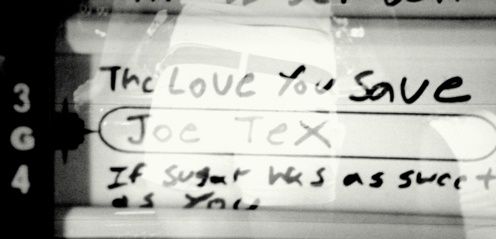 3 The Love You Save
G Joe Tex
4 If sugar was as sweet
as you